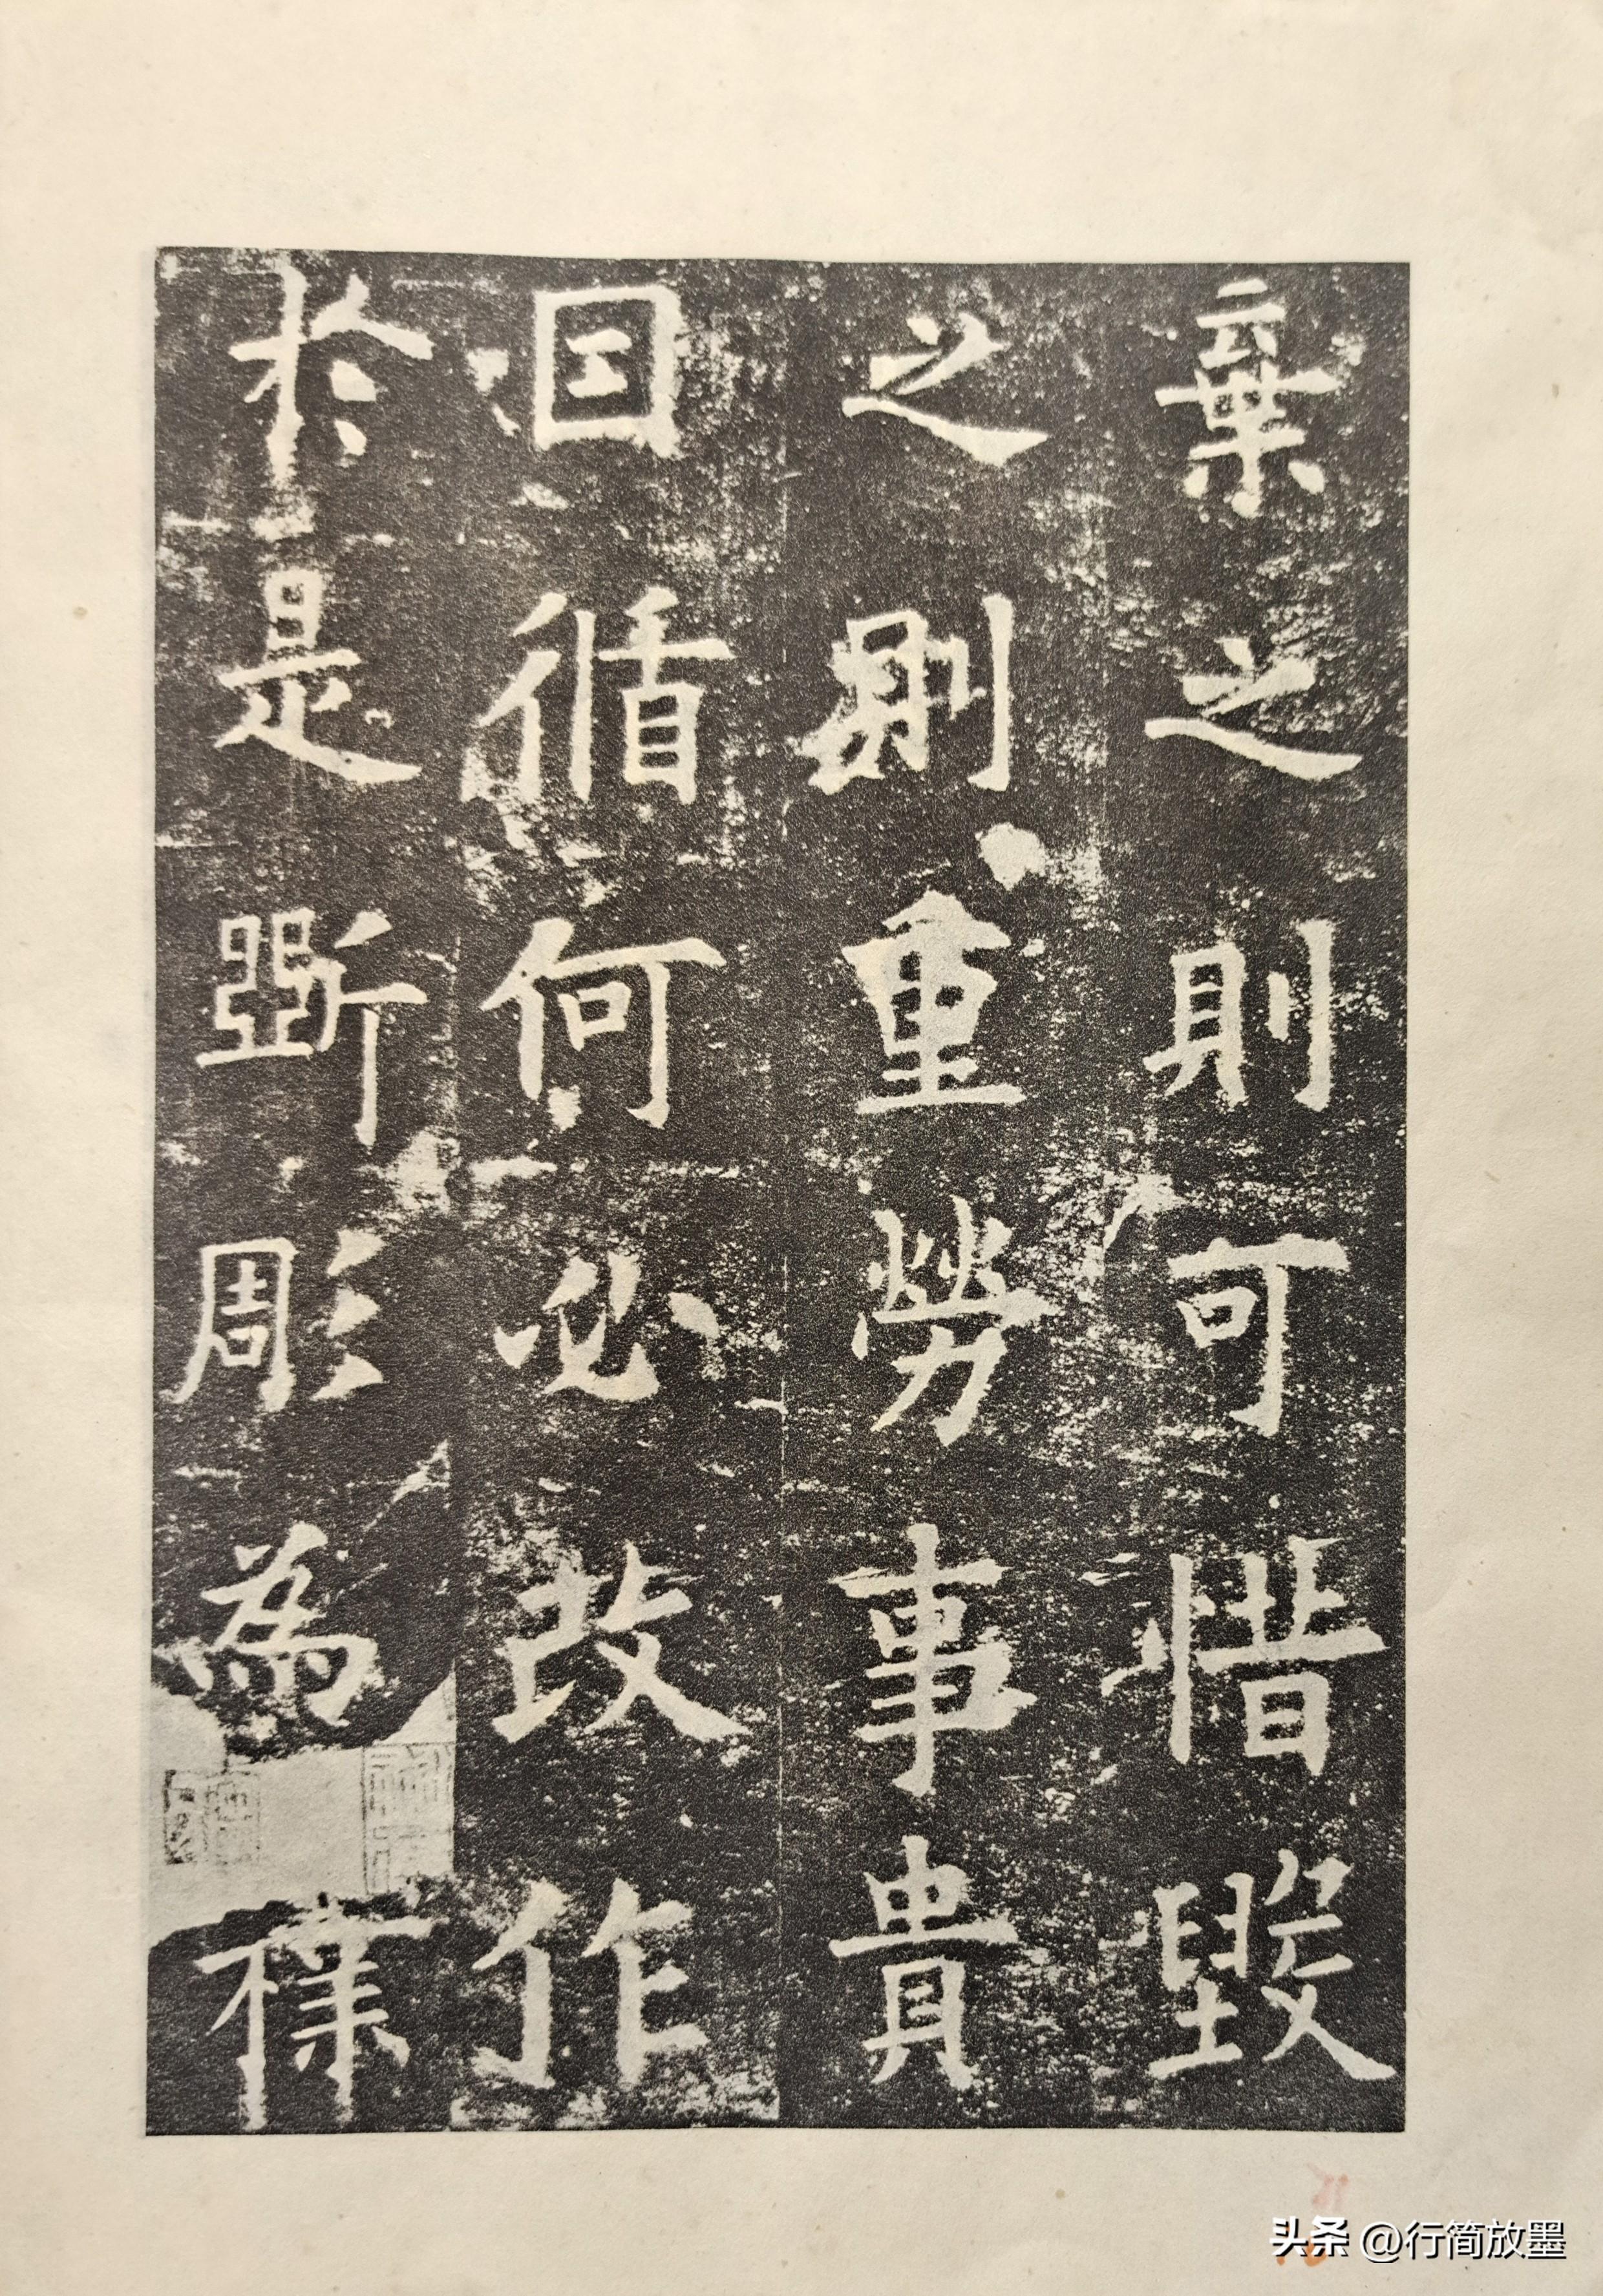 棄之則可惜毀
之則重勞事貴
因循何必改作
於是斲彫為樸
头条 @行简放墨